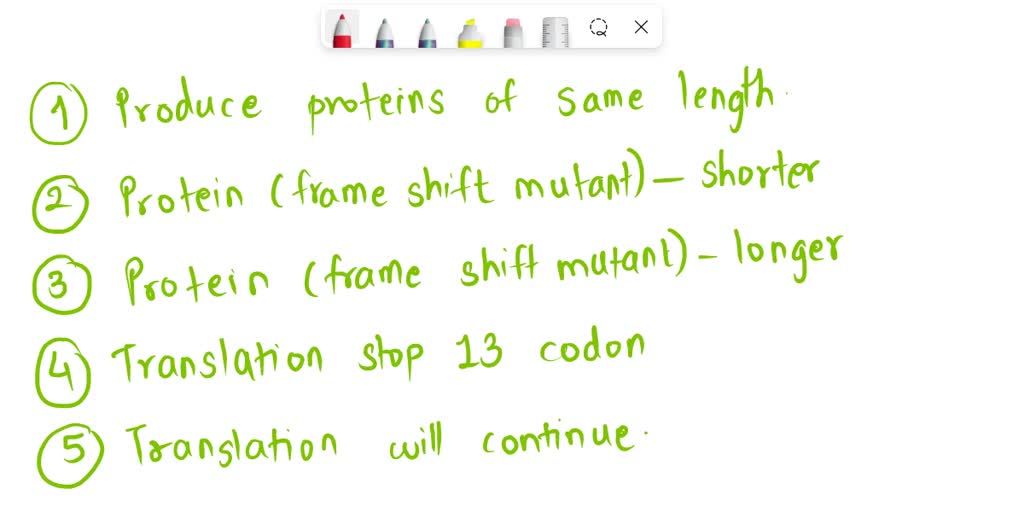 1 Produce proteins of same length.
2 Protein (frame shift mutant) – shorter
3 Protein (frame shift mutant) – longer
4 Translation stop 13 codon
5 Translation will continue.